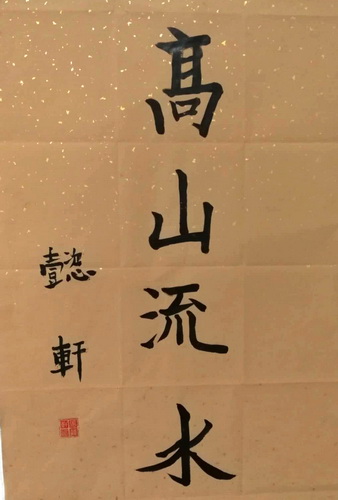 髙山流水
懿軒